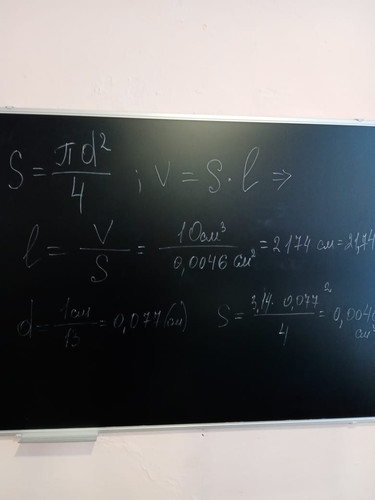 S = πd²/4 ; V = S · l ⇒
l = V/S = 10см³/0,0046 см² = 2174 см = 21,74
d = 1см/13 = 0,077 (см) S = 3,14 · 0,077²/4 = 0,0046 см²